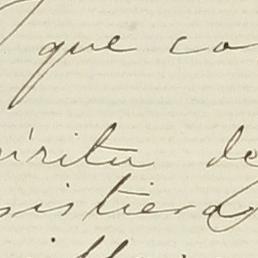 que co
íritu de
sistiera